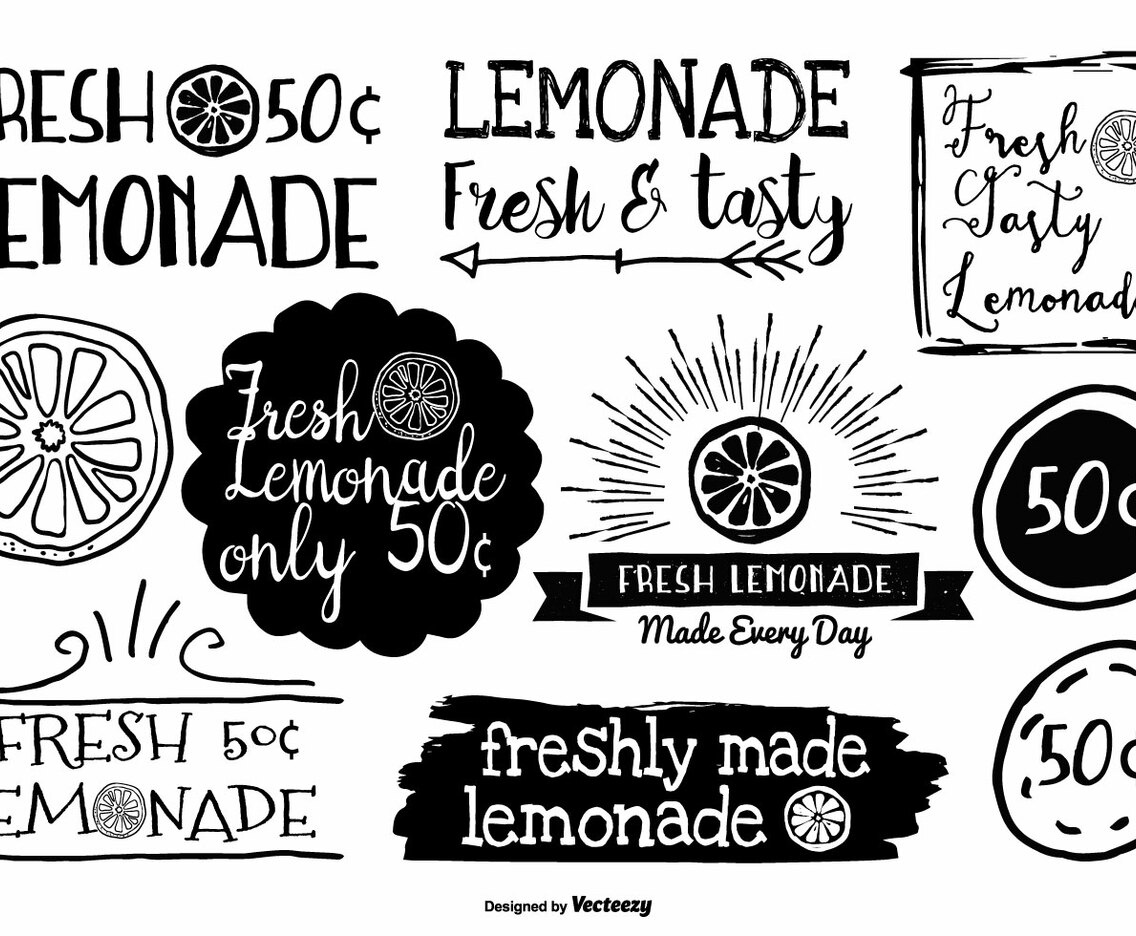 RESH 50¢
EMONADE
LEMONADE
Fresh & tasty
Fresh
Tasty
Lemonad
Fresh
Lemonade
only 50¢
FRESH LEMONADE
Made Every Day
50¢
FRESH 50¢
EMONADE
freshly made
lemonade
50¢
Designed by Vecteezy